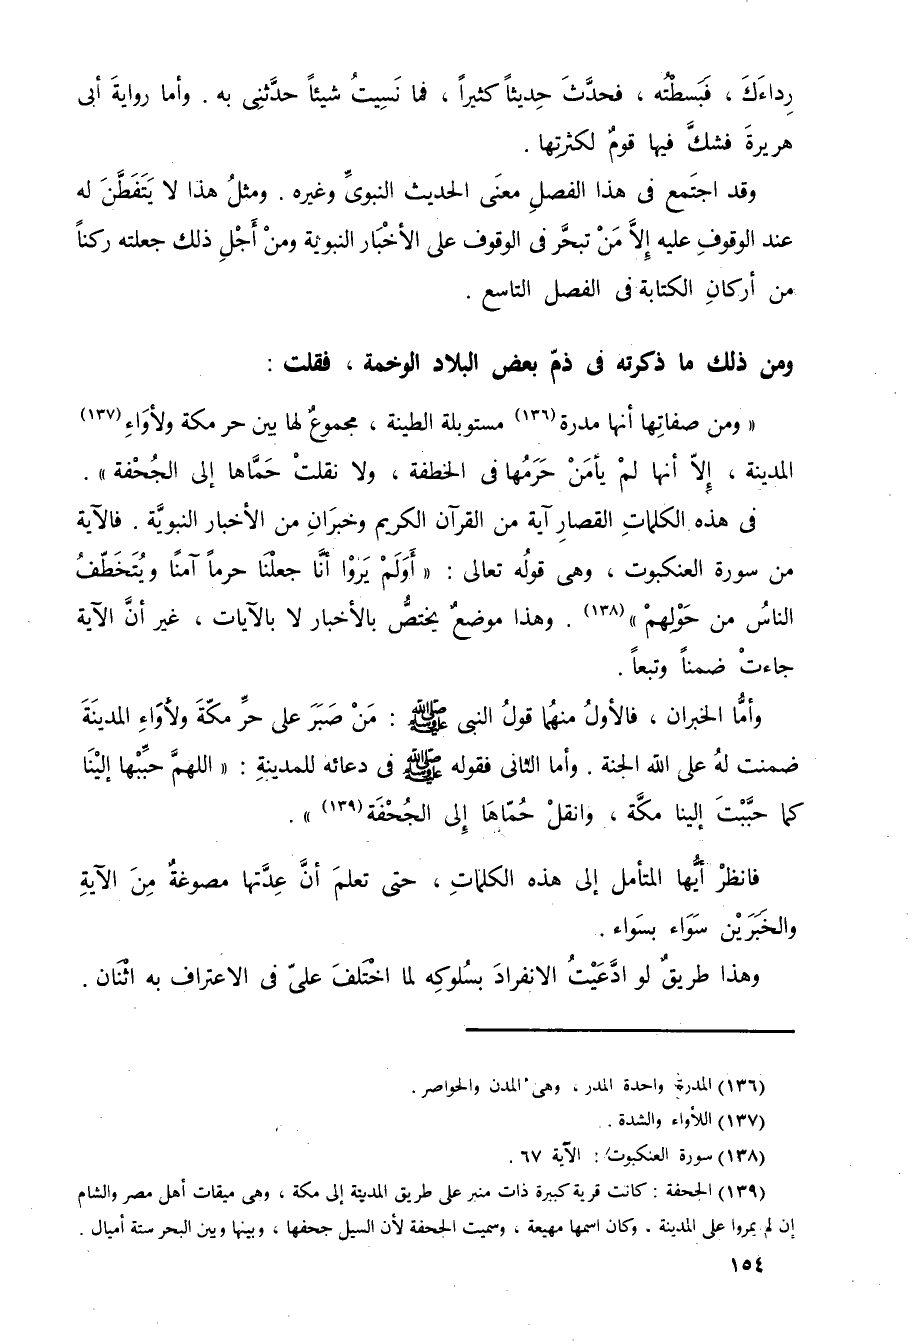 رِداءَكَ ، فَبَسطْتُه ، فحدَّثَ حِديثاً كثيراً ، فما نَسِيتُ شيئاً حدَّثنِى به . وأما روايةَ أبى
هريرةَ فشكَّ فيها قومٌ لكثرتِها .
وقد اجتَمع فى هذا الفصلِ معنَى الحديث النبوىِّ وغيره . ومثلُ هذا لا يَتَفَطَّنَ له
عند الوقوفِ عليه إِلاَّ مَنْ تبحَّر فى الوقوف على الأخْبَار النبوية ومنْ أَجْلِ ذلك جعلته ركناً
من أركانِ الكتابة فى الفصل التاسع .
ومن ذلك ما ذكرته فى ذمّ بعض البلاد الوخمة ، فقلت :
« ومن صفاتِها أنها مدرة (١٣٦) مستوبلة الطينة ، مجموعٌ لها بين حر مكة ولأوَاءِ (١٣٧)
المدينة ، إِلاّ أنها لمْ يأمَنْ حَرَمُها فى الخطفة ، ولا نقلتْ حمَّاها إلى الجُحْفة » .
فى هذه الكلماتِ القصارِ آية من القرآن الكريم وخبرَانِ من الأخبار النبويَّة . فالآية
من سورة العنكبوت ، وهى قولُه تعالى : « أَوَلَمْ يَرَوْا أنَّا جعلْنَا حرماً آمنًا ويُتَخَطّفُ
الناسُ من حَوْلِهمْ » (١٣٨) . وهذا موضعٌ يختصُّ بالأخبار لا بالآيات ، غير أنَّ الآية
جاءتْ ضمناً وتبعاً .
وأمُّا الخبران ، فالأولُ منهُما قولُ النبى ﷺ : مَنْ صَبَرَ على حرِّ مكّةَ ولأوّاءِ المدينَةَ
ضمنت لهُ على اللّه الجنة . وأما الثانى فقوله ﷺ فى دعائه للمدينةِ : « اللهمَّ حبِّبْها إليْنَا
كما حبَّبْتَ إلينا مكَّة ، وانقلْ حُمّاهَا إلى الجُحْفَة (١٣٩) » .
فانظرْ أيُّها المتأمل إلى هذه الكلماتِ ، حتى تعلمَ أنَّ عِدَّتها مصوغةٌ مِنَ الآيةِ
والخَبَرَيْن سَوَاء بسَواء .
وهذا طريقٌ لو ادَّعَيْتُ الانفرادَ بسُلوكِه لما اخْتَلفَ علىّ فى الاعتراف به اثْنَان .
(١٣٦) المدرة واحدة المدر ، وهى المدن والحواصر .
(١٣٧) اللأواء والشدة .
(١٣٨) سورة العنكبوت : الآية ٦٧ .
(١٣٩) الجحفة : كانت قرية كبيرة ذات منبر على طريق المدينة إلى مكة ، وهى ميقات أهل مصر والشام
إن لم يمروا على المدينة . وكان اسمها مهيعة ، وسميت الجحفة لأن السيل جحفها ، وبينها وبين البحر ستة أميال .
١٥٤